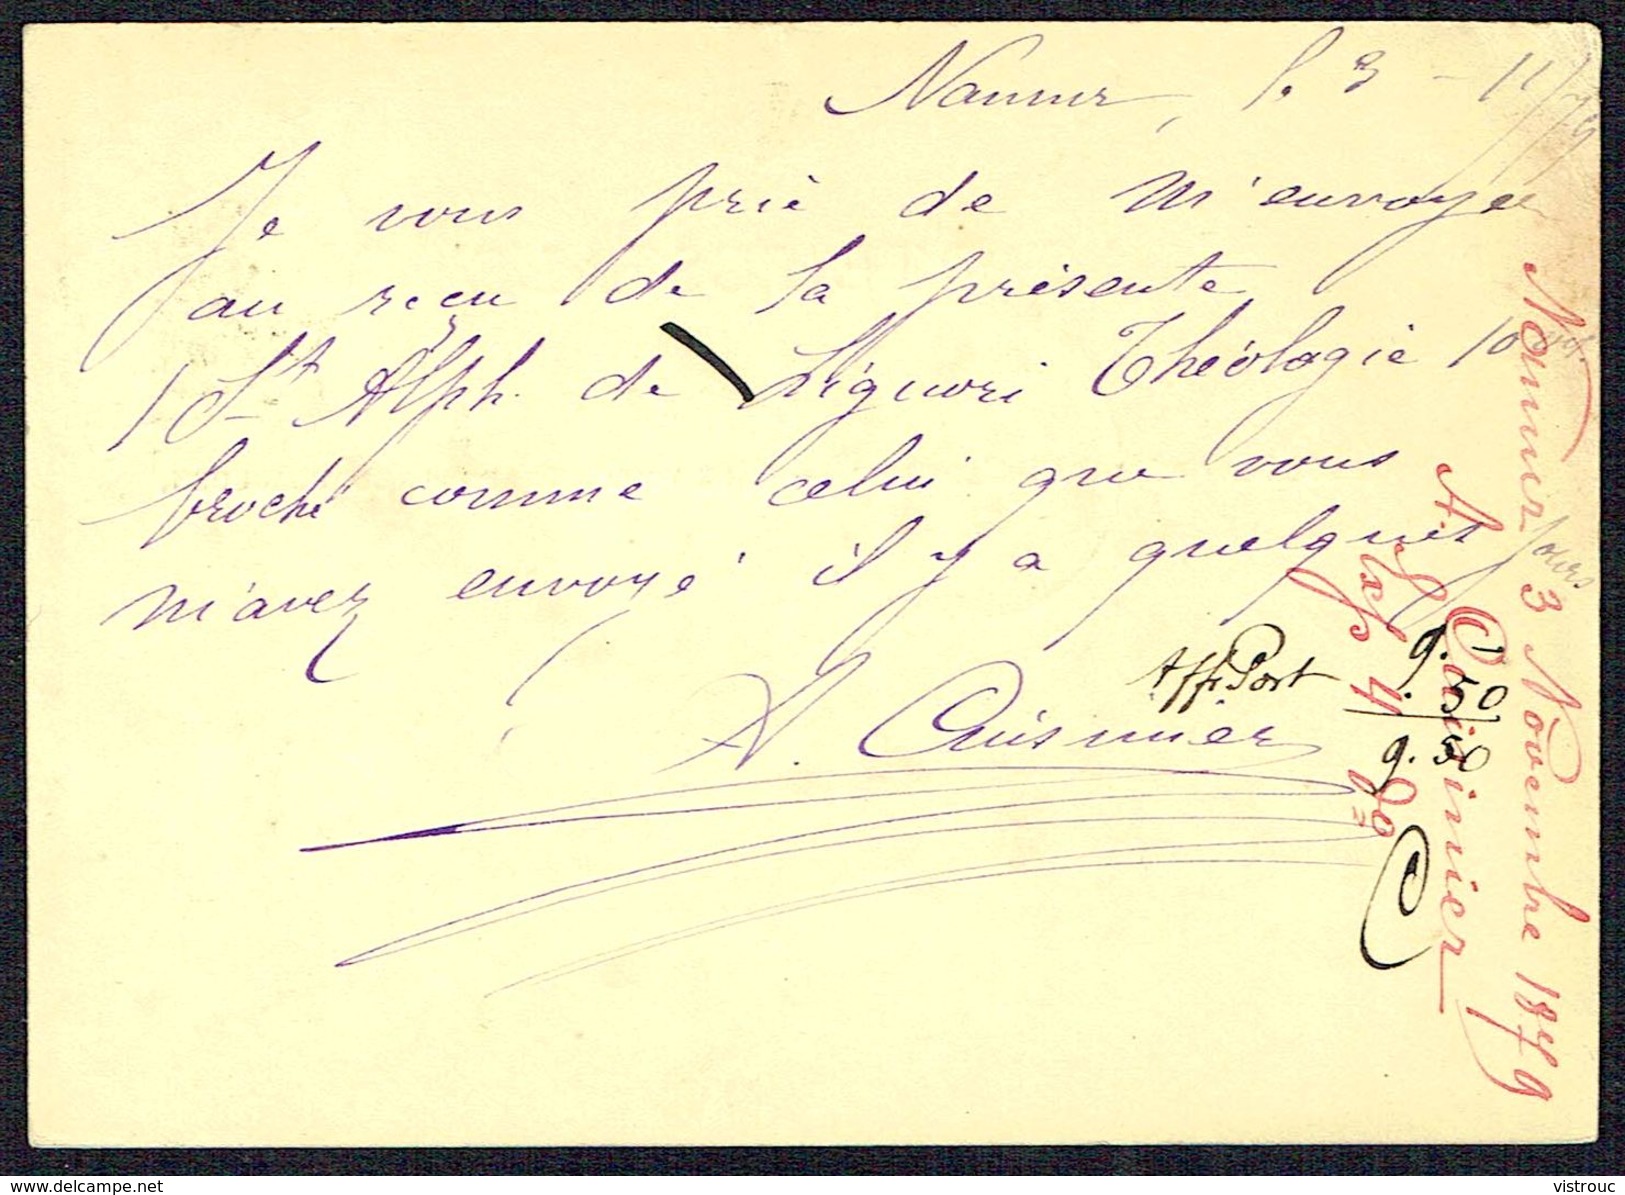 Namur, le 3 - 11/79
Je vous prie de m'envoyer
au reçu de la présente
1 St Alph. de Liguori Théologie 10
broché comme celui que vous
m'avez envoyé il y a quelques jours
A. Cuisinier
Aff. Port
9.
.50
9.50
Namur 3 Novembre 1879
A. Cuisinier
vistrouc
delcampe.net